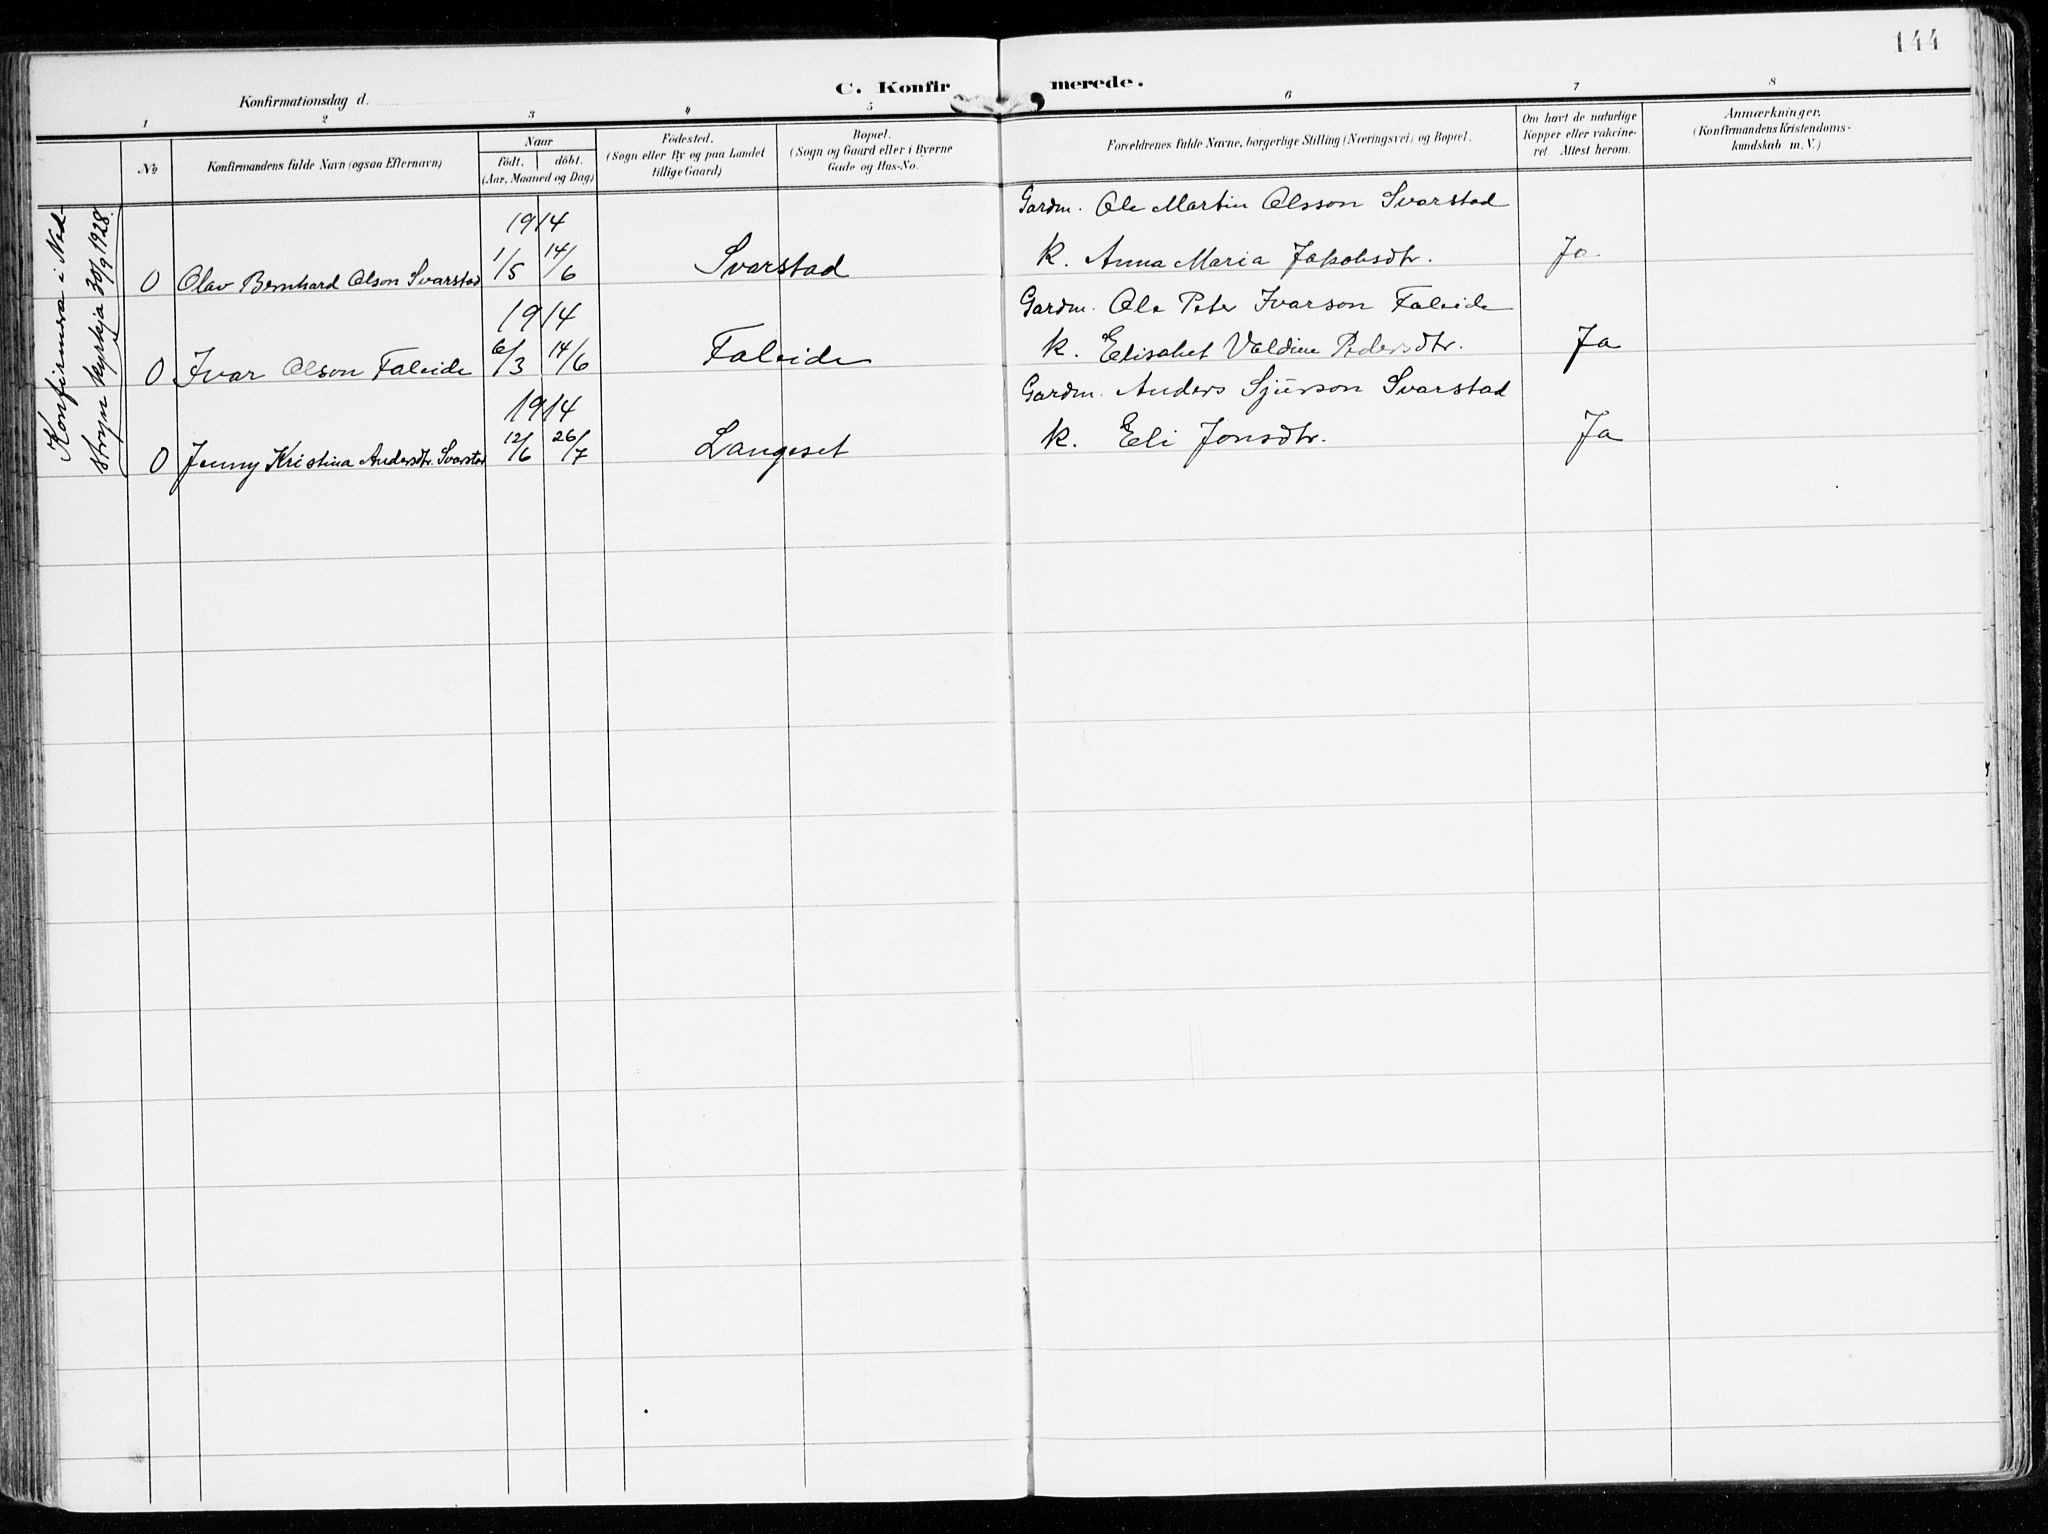 144
C. Konfirmerede.
Konfirmationsdag d.
1 2 3 4 5 6 7 8
No
Konfirmandens fulde Navn (ogsaa Efternavn)
Naar
født. døbt.
(Aar, Maaned og Dag)
Fødested.
(Sogn eller By og paa Landet
tillige Gaard)
Bopæl.
(Sogn og Gaard eller i Byerne
Gade og Hus-No.
Forældrenes fulde Navne, borgerlige Stilling (Næringsvei) og Bopæl.
Om havt de naturlige
Kopper eller vakcine-
ret Attest herom.
Anmærkninger.
(Konfirmandens Kristendoms-
kundskab m. V.)
Konfirmera i Ned-
stryn kyrkja 30/9 1928.
1914
Gardm. Ole Martin Olsson Svarstad
0 Olav Bernhard Olson Svarstad 1/5 14/6 Svarstad k. Anna Maria Jakobsdtr. Ja
1914
Gardm. Ole Peter Ivarson Faleide
0 Ivar Olson Faleide 6/3 14/6 Faleide k. Elisabet Valdine Pedersdtr. Ja
1914
Gardm. Anders Sjurson Svarstad
0 Jenny Kristina Andersdtr. Svarstad 12/6 26/7 Langeset k. Eli Jonsdtr. Ja